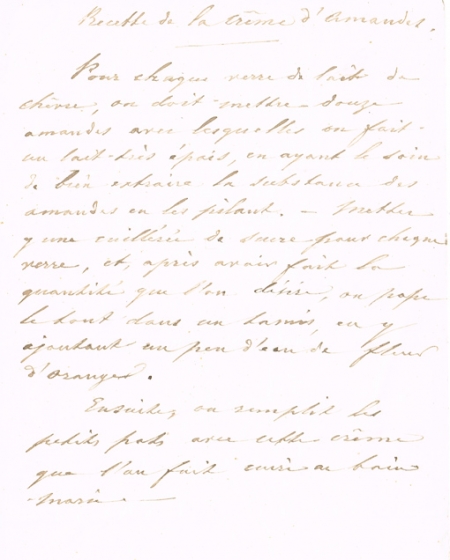 Recette de la Crême d'Amandes.
Pour chaque verre de lait de
chèvre, on doit mettre douze
amandes avec lesquelles on fait
un lait très épais, en ayant le soin
de bien extraire la substance des
amandes en les pilant. — Mettez
y une cuillérée de sucre pour chaque
verre, et, après avoir fait la
quantité que l'on désire, on passe
le tout dans un tamis, en y
ajoutant un peu d'eau de fleur
d'oranger.
Ensuite, on remplit les
petits pots avec cette crême
que l'on fait cuire au bain
marie. —